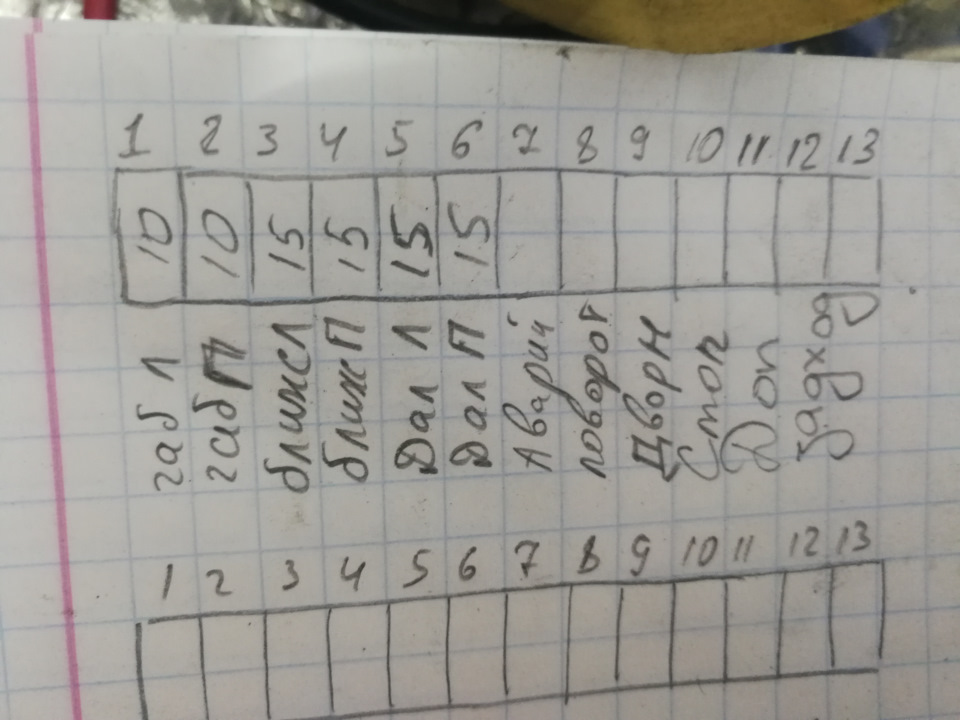 1 2 3 4 5 6 7 8 9 10 11 12 13
10 10 15 15 15 15
габ Л
габ П
ближ Л
ближ П
Дал Л
Дал П
Аварий
поворот
Дворн
Стоп
Доп
задход
1 2 3 4 5 6 7 8 9 10 11 12 13